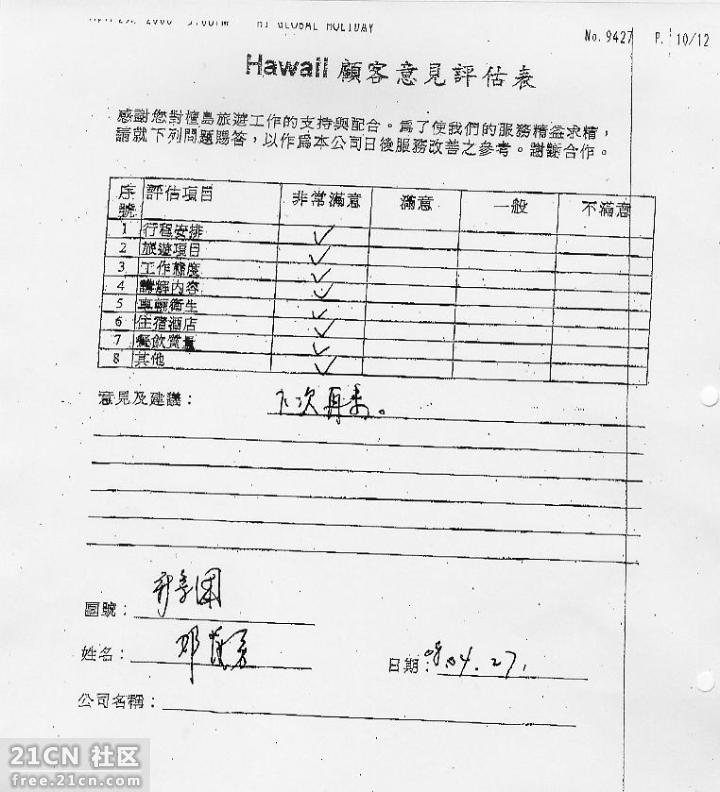 2008 3:00PM HI GLOBAL HOLIDAY
No. 9427 P. 10/12
Hawaii 顧客意見評估表
感謝您對檀島旅遊工作的支持與配合。為了使我們的服務精益求精，
請就下列問題賜答，以作為本公司日後服務改善之參考。謝謝合作。
序號 評估項目 非常滿意 滿意 一般 不滿意
1 行程安排 ✓
2 旅遊項目 ✓
3 工作態度 ✓
4 講解内容 ✓
5 車輛衛生 ✓
6 住宿酒店 ✓
7 餐飲質量 ✓
8 其他 ✓
意見及建議： 下次再来。
團號：
姓名： 邓
日期： 08.04.27.
公司名稱：
21CN 社区
free.21cn.com